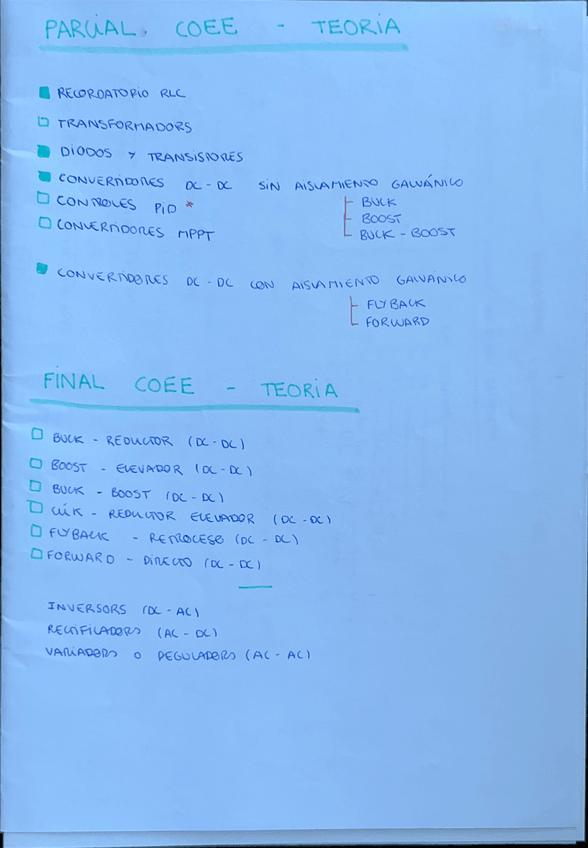 PARCIAL COEE - TEORIA
RECORDATORIO RLC
TRANSFORMADORS
DIODOS Y TRANSISTORES
CONVERTIDORES DC-DC SIN AISLAMIENTO GALVÁNICO
CONTROLES PID *
BUCK
BOOST
CONVERTIDORES MPPT
BUCK-BOOST
CONVERTIDORES DC-DC CON AISLAMIENTO GALVANICO
FLYBACK
FORWARD
FINAL COEE - TEORIA
BUCK - REDUCTOR (DC-DC)
BOOST - ELEVADOR (DC-DC)
BUCK - BOOST (DC-DC)
CÚK - REDUCTOR ELEVADOR (DC-DC)
FLYBACK - RETROCESO (DC-DC)
FORWARD - DIRECTO (DC-DC)
INVERSORS (DC-AC)
RECTIFICADORS (AC-DC)
VARIADORS O REGULADORS (AC-AC)